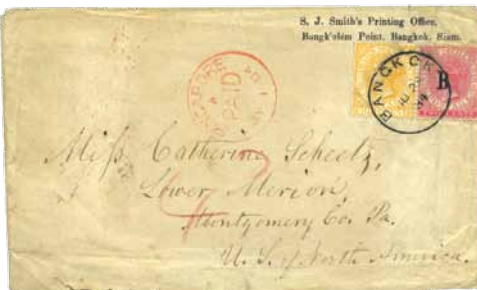 S. J. Smith's Printing Office,
Bangk'olém Point, Bangkok, Siam.
BANGKOK
B
PAID
Miss Catherine Scheetz,
Lower Merion,
Montgomery Co. Pa.
U. S. of North America.